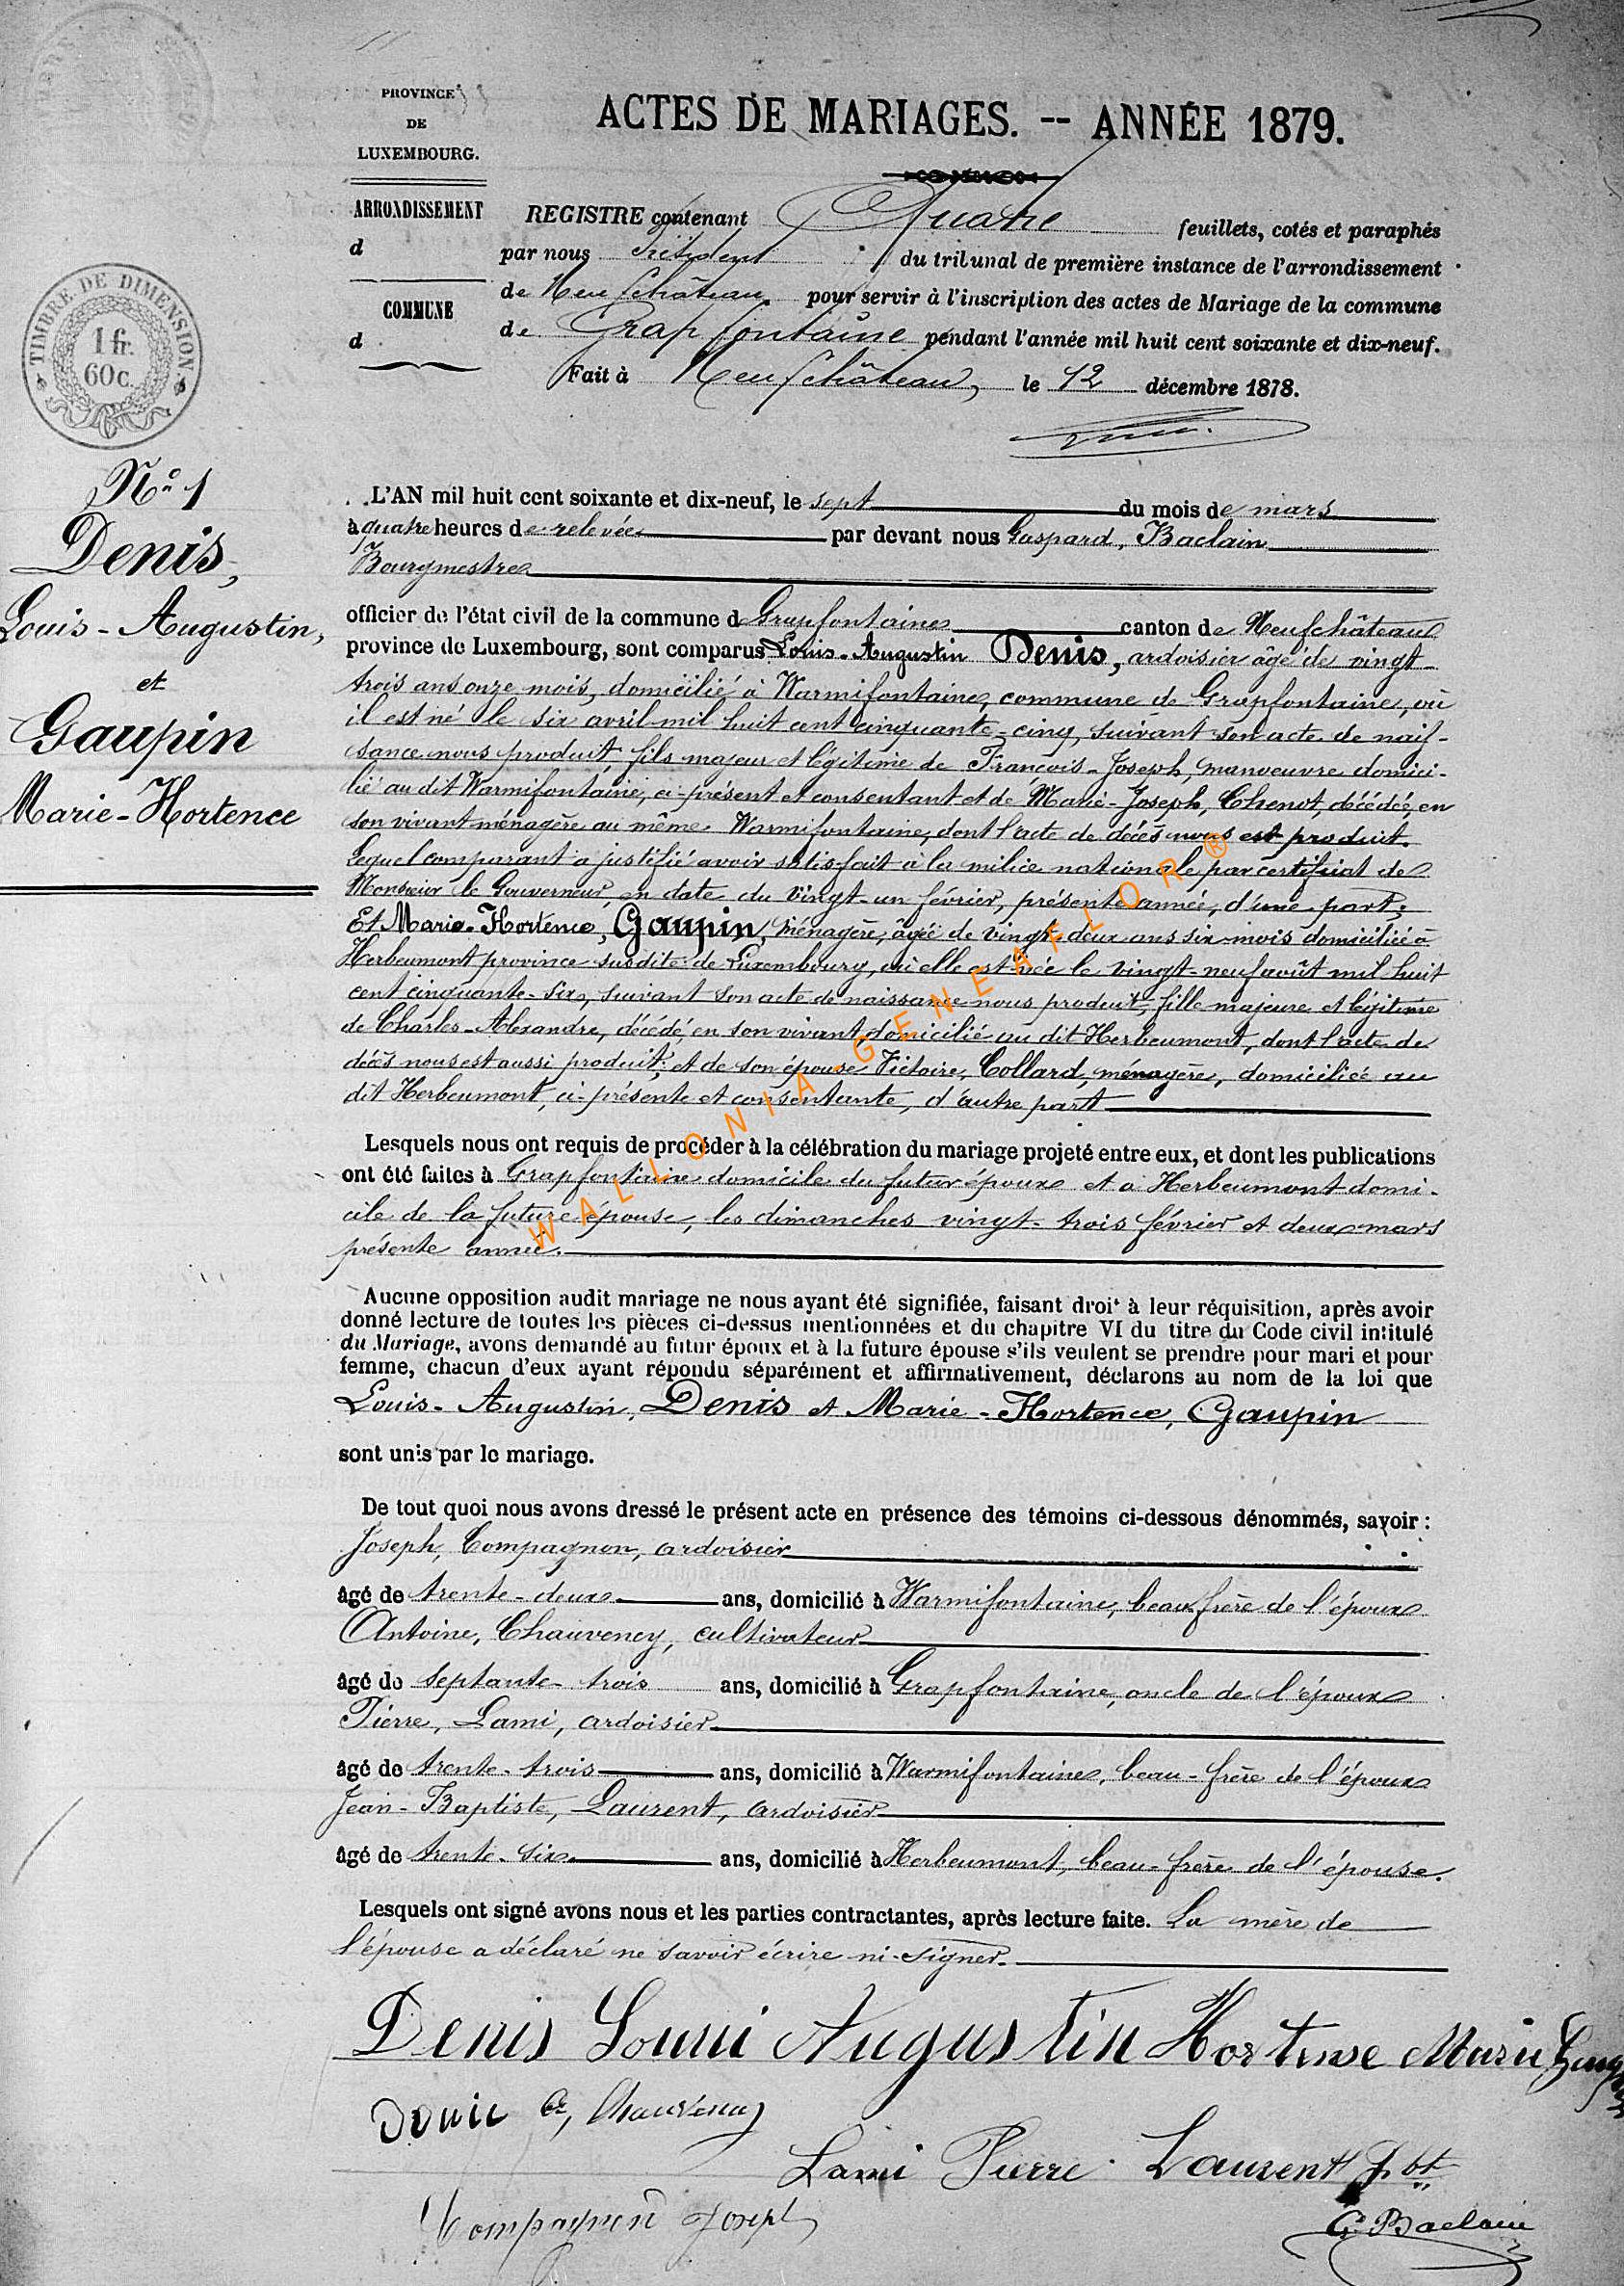 PROVINCE
DE
LUXEMBOURG.
ARRONDISSEMENT
d
COMMUNE
d
TIMBRE DE DIMENSION
1 fr.
60 c.
ACTES DE MARIAGES. -- ANNÉE 1879.
REGISTRE contenant Quatre feuillets, cotés et paraphés
par nous Président du tribunal de première instance de l'arrondissement
de Neufchâteau pour servir à l'inscription des actes de Mariage de la commune
de Grapfontaine pendant l'année mil huit cent soixante et dix-neuf.
Fait à Neufchâteau, le 12 décembre 1878.
N° 1
Denis,
Louis-Augustin,
et
Gaupin
Marie-Hortence
L'AN mil huit cent soixante et dix-neuf, le sept du mois de mars
à quatre heures de relevée par devant nous Gaspard, Baclain
Bourgmestre
officier de l'état civil de la commune de Grapfontaine canton de Neufchâteau
province de Luxembourg, sont comparus Louis-Augustin Denis, ardoisier âgé de vingt-
trois ans onze mois, domicilié à Warmifontaine, commune de Grapfontaine, où
il est né le six avril mil huit cent cinquante-cinq, suivant son acte de naif-
sance nous produit, fils majeur et légitime de François-Joseph, manoeuvre domici-
lié au dit Warmifontaine, ci-présent et consentant et de Marie-Joseph, Chenot, décédée, en
son vivant ménagère au même Warmifontaine, dont l'acte de décès nous est produit.
Lequel comparant a justifié avoir satisfait à la milice nationale par certificat de
Monsieur le Gouverneur, en date du vingt-un février, présente année, d'une part;
Et Marie-Hortence, Gaupin, ménagère, âgée de vingt-deux ans six mois domiciliée à
Herbeumont province susdite de Luxembourg, où elle est née le vingt-neuf août mil huit
cent cinquante-six, suivant son acte de naissance nous produit, fille majeure et légitime
de Charles-Alexandre, décédé, en son vivant domicilié au dit Herbeumont, dont l'acte de
décès nous est aussi produit, et de son épouse Victoire, Collard, ménagère, domiciliée au
dit Herbeumont, ci-présente et consentante, d'autre part
Lesquels nous ont requis de procéder à la célébration du mariage projeté entre eux, et dont les publications
ont été faites à Grapfontaine domicile du futur époux et à Herbeumont domi-
cile de la future épouse, les dimanches vingt-trois février et deux mars
présente année.
Aucune opposition audit mariage ne nous ayant été signifiée, faisant droit à leur réquisition, après avoir
donné lecture de toutes les pièces ci-dessus mentionnées et du chapitre VI du titre du Code civil intitulé
du Mariage, avons demandé au futur époux et à la future épouse s'ils veulent se prendre pour mari et pour
femme, chacun d'eux ayant répondu séparément et affirmativement, déclarons au nom de la loi que
Louis-Augustin, Denis et Marie-Hortence, Gaupin
sont unis par le mariage.
De tout quoi nous avons dressé le présent acte en présence des témoins ci-dessous dénommés, savoir :
Joseph, Compagnon, ardoisier
âgé de trente-deux ans, domicilié à Warmifontaine, beau frère de l'époux
Antoine, Chauvency, cultivateur
âgé de septante-trois ans, domicilié à Grapfontaine, oncle de l'époux
Pierre, Lami, ardoisier
âgé de trente-trois ans, domicilié à Warmifontaine, beau-frère de l'époux
Jean-Baptiste, Laurent, ardoisier
âgé de trente-six ans, domicilié à Herbeumont, beau-frère de l'épouse.
Lesquels ont signé avons nous et les parties contractantes, après lecture faite. La mère de
l'épouse a déclaré ne savoir écrire ni signer.
Denis Loui Augustin Hortense Marie
Lami Pierre Laurent J. bt
Compagnon Joseph
G. Baclain
WALLONIA-GENEAFLOR®